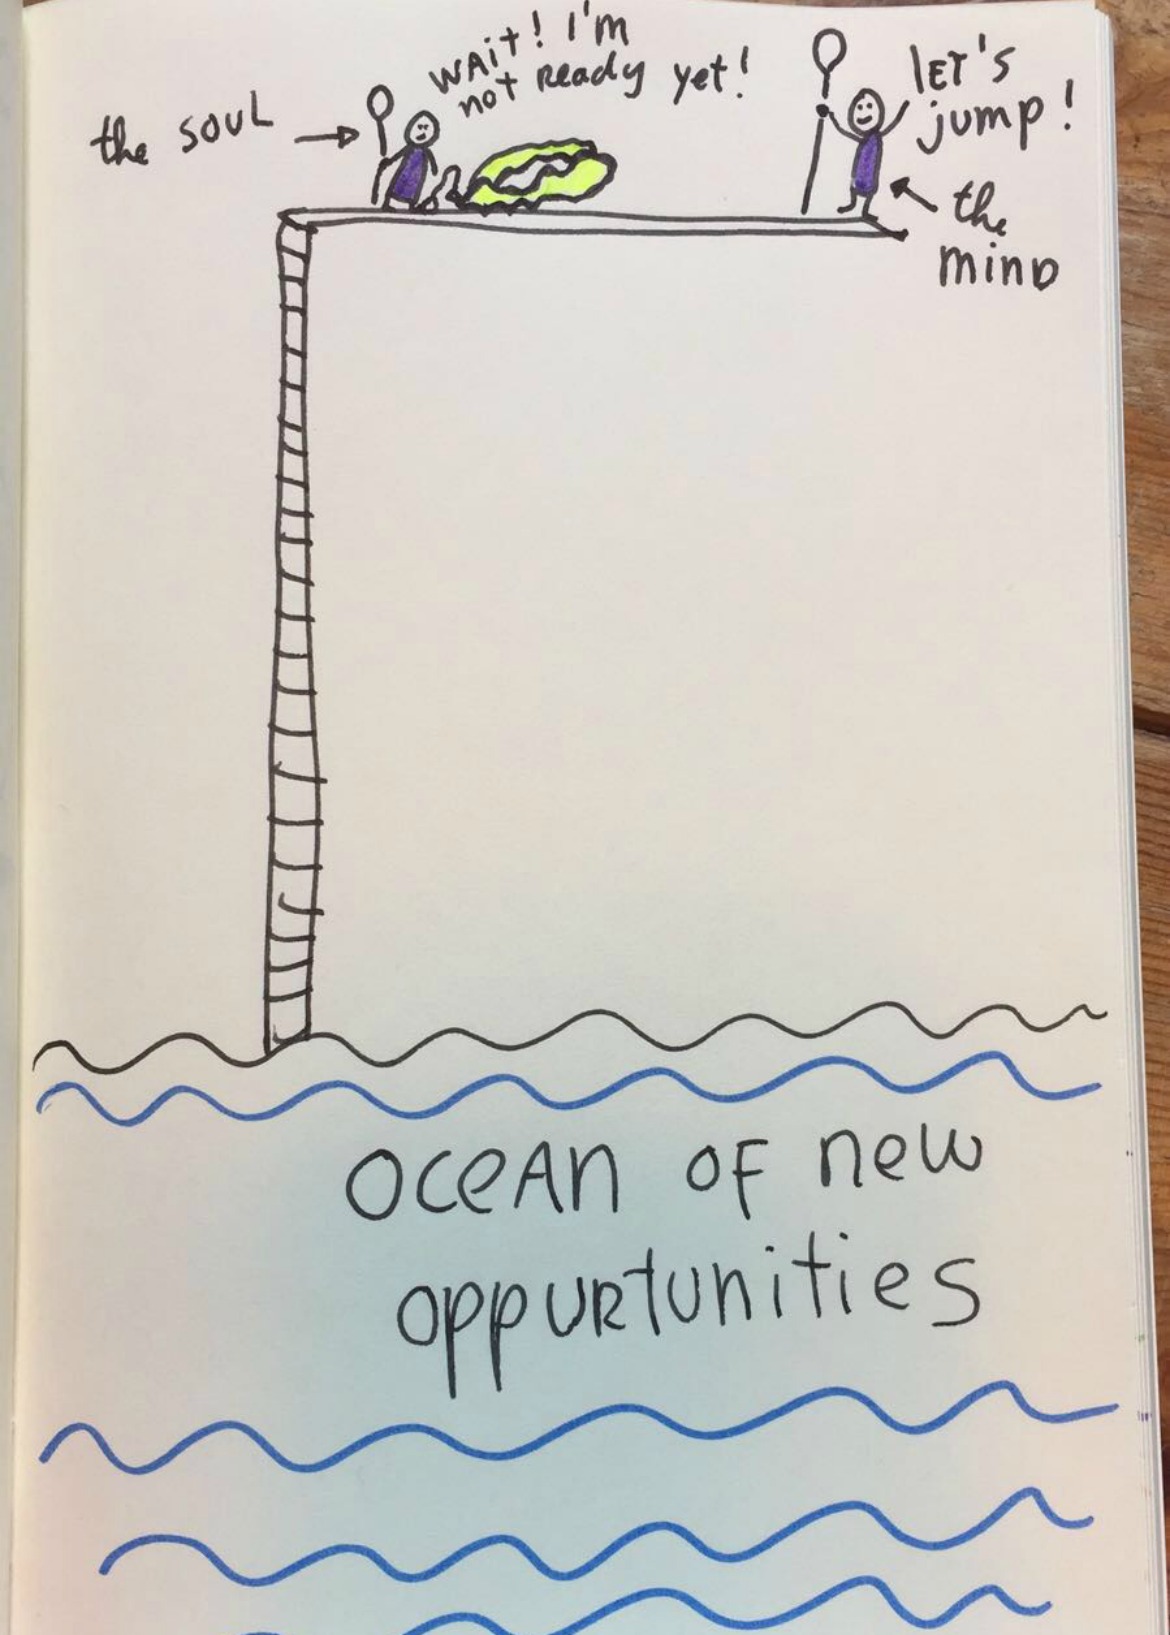 the SOUL
WAit! I'm
not Ready yet!
LET'S
jump!
the
minD
OCeAn OF new
OppuRtunities